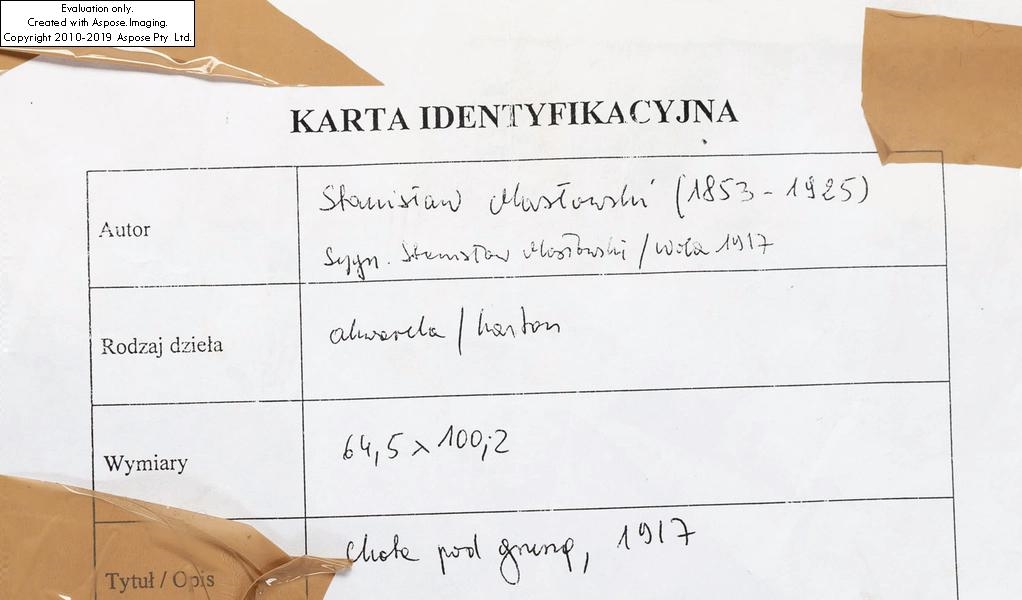 Evaluation only.
Created with Aspose.Imaging.
Copyright 2010-2019 Aspose Pty Ltd.
KARTA IDENTYFIKACYJNA
Autor
Stanisław Masłowski (1853 - 1925)
Sygn. Stanisław Masłowski / Wola 1917
Rodzaj dzieła
akwarela / karton
Wymiary
64,5 x 100,2
Tytuł / Opis
Chata pod gruszą, 1917